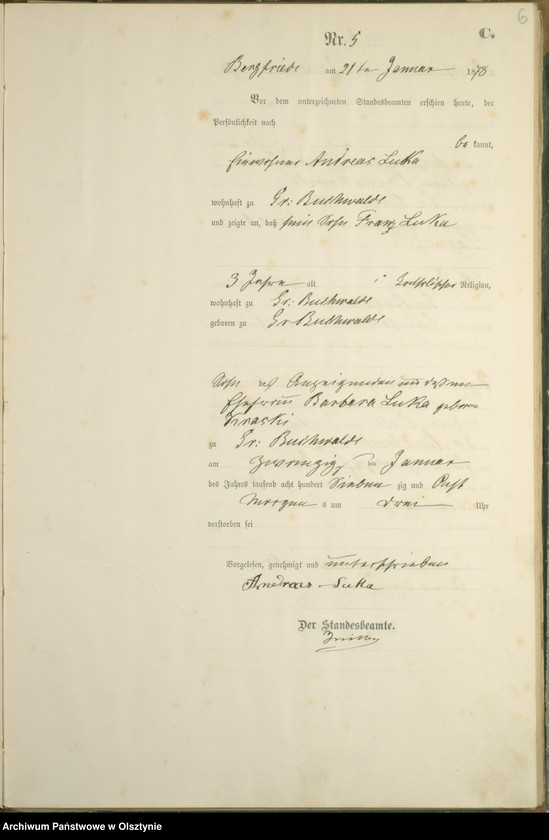 6
C.
Nr. 5
Bergfriede am 21ten Januar 1878
Vor dem unterzeichneten Standesbeamten erschien heute, der
Persönlichkeit nach
be kannt,
Einwohner Andreas Luka
wohnhaft zu Gr: Buchwalde
und zeigte an, daß sein Sohn Franz Luka
3 Jahre alt Katholischer Religion,
wohnhaft zu Gr: Buchwalde
geboren zu Gr Buchwalde
Sohn des Anzeigenden und dessen
Ehefrau Barbara Luka geborne
zu Gr: Buchwalde
am zwanzigsten Januar
des Jahres tausend acht hundert Sieben zig und Acht
Morgens um drei Uhr
verstorben sei
Vorgelesen, genehmigt und unterschrieben
Andreas Luka
Der Standesbeamte.
Archiwum Państwowe w Olsztynie